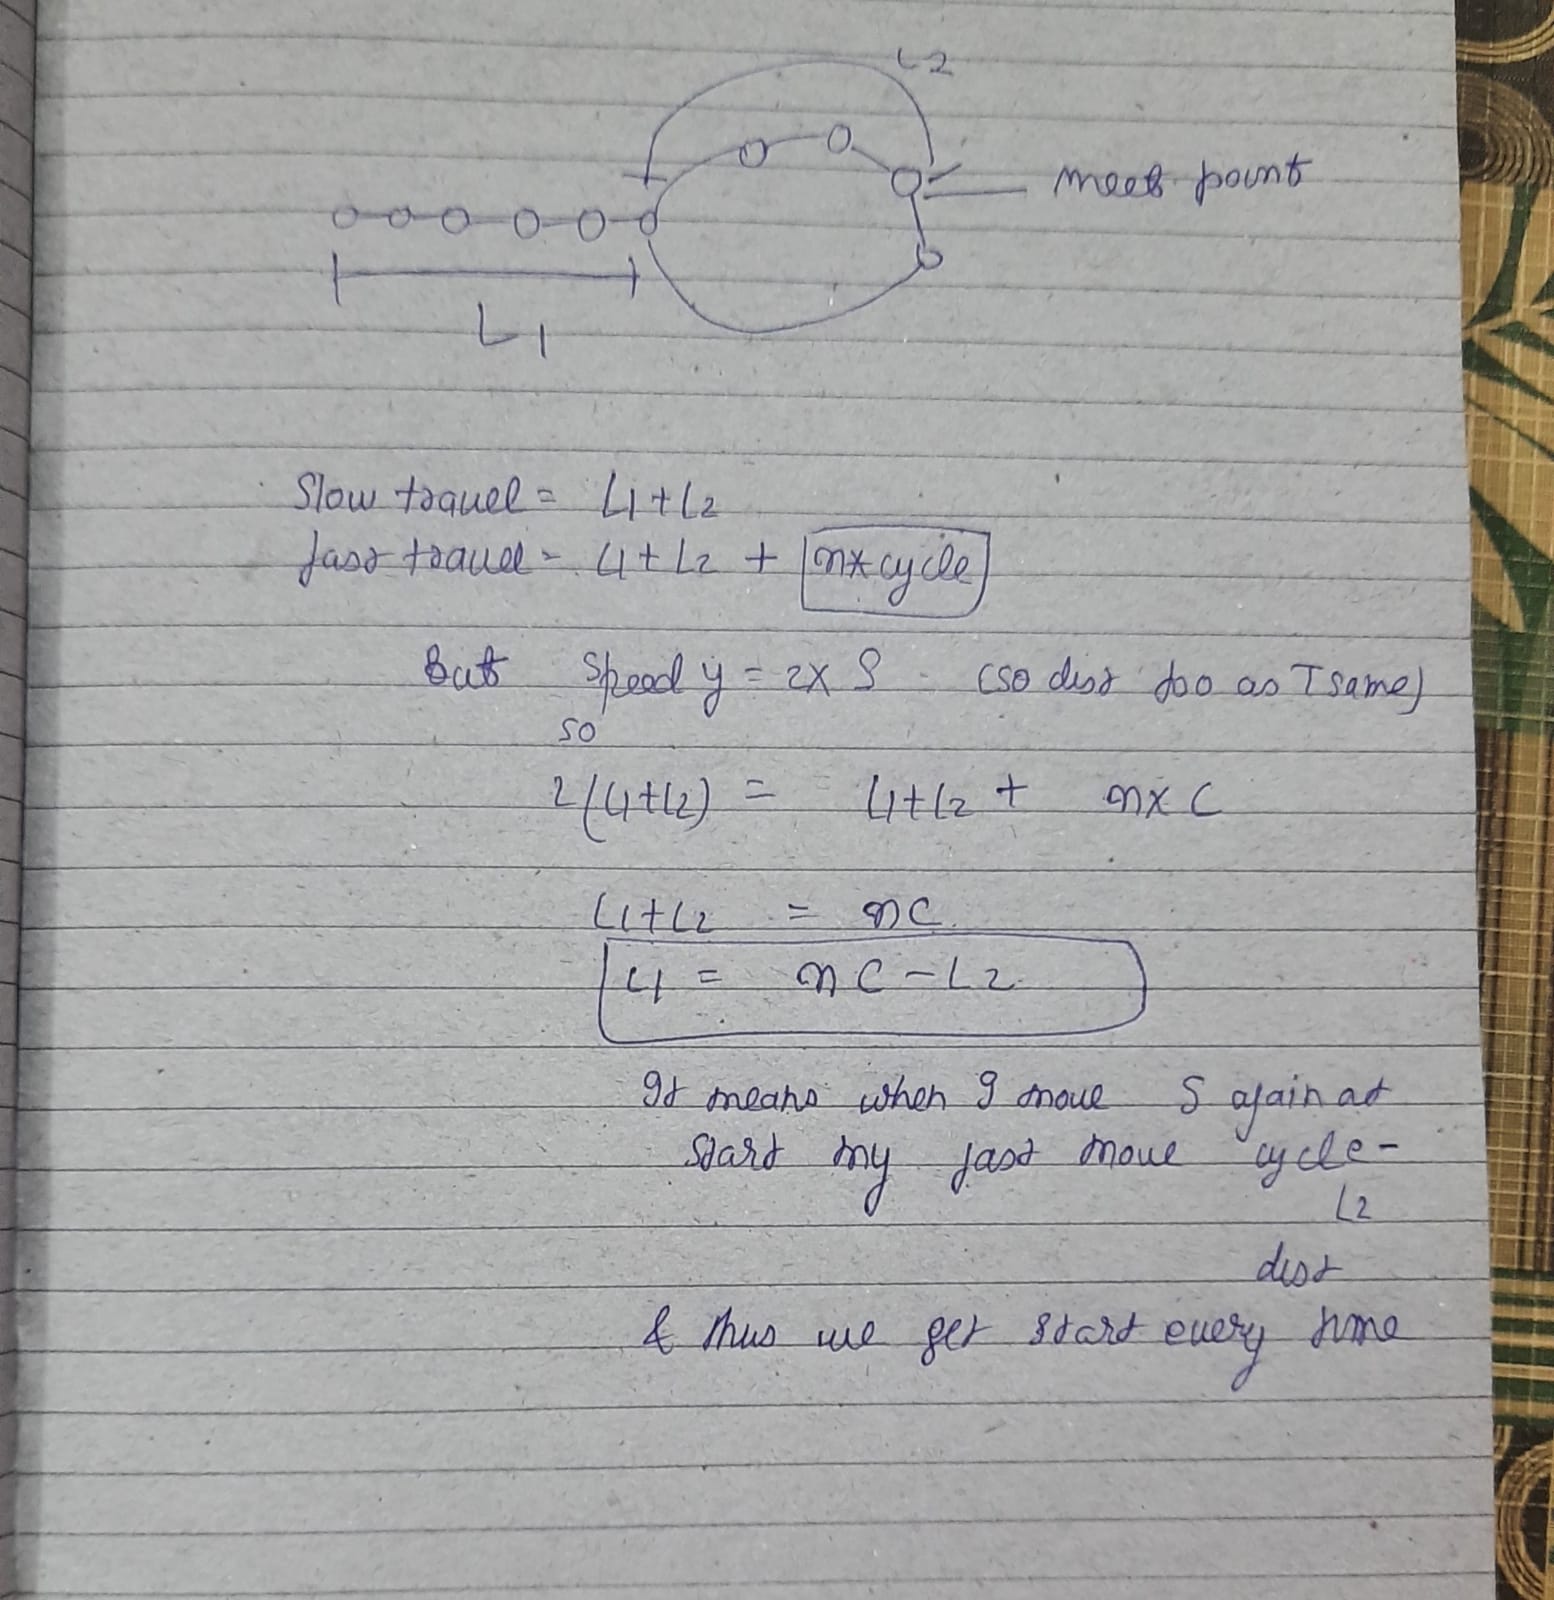 L2
meet point
L1
Slow travel = L1+L2
fast travel = L1+L2 + n*cycle
But Speed f = 2x S (so dist too as T same)
so
2(L1+L2) = L1+L2 + nx C
L1+L2 = nC
L1 = nC-L2
It means when I move S again at
start my fast move cycle-
L2
dist
& thus we get start every time